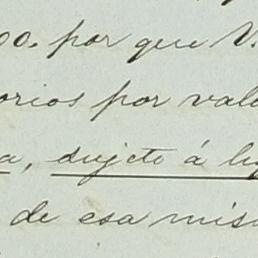 00. por que V.
orios por valo
a, sujeto á
de esa mis